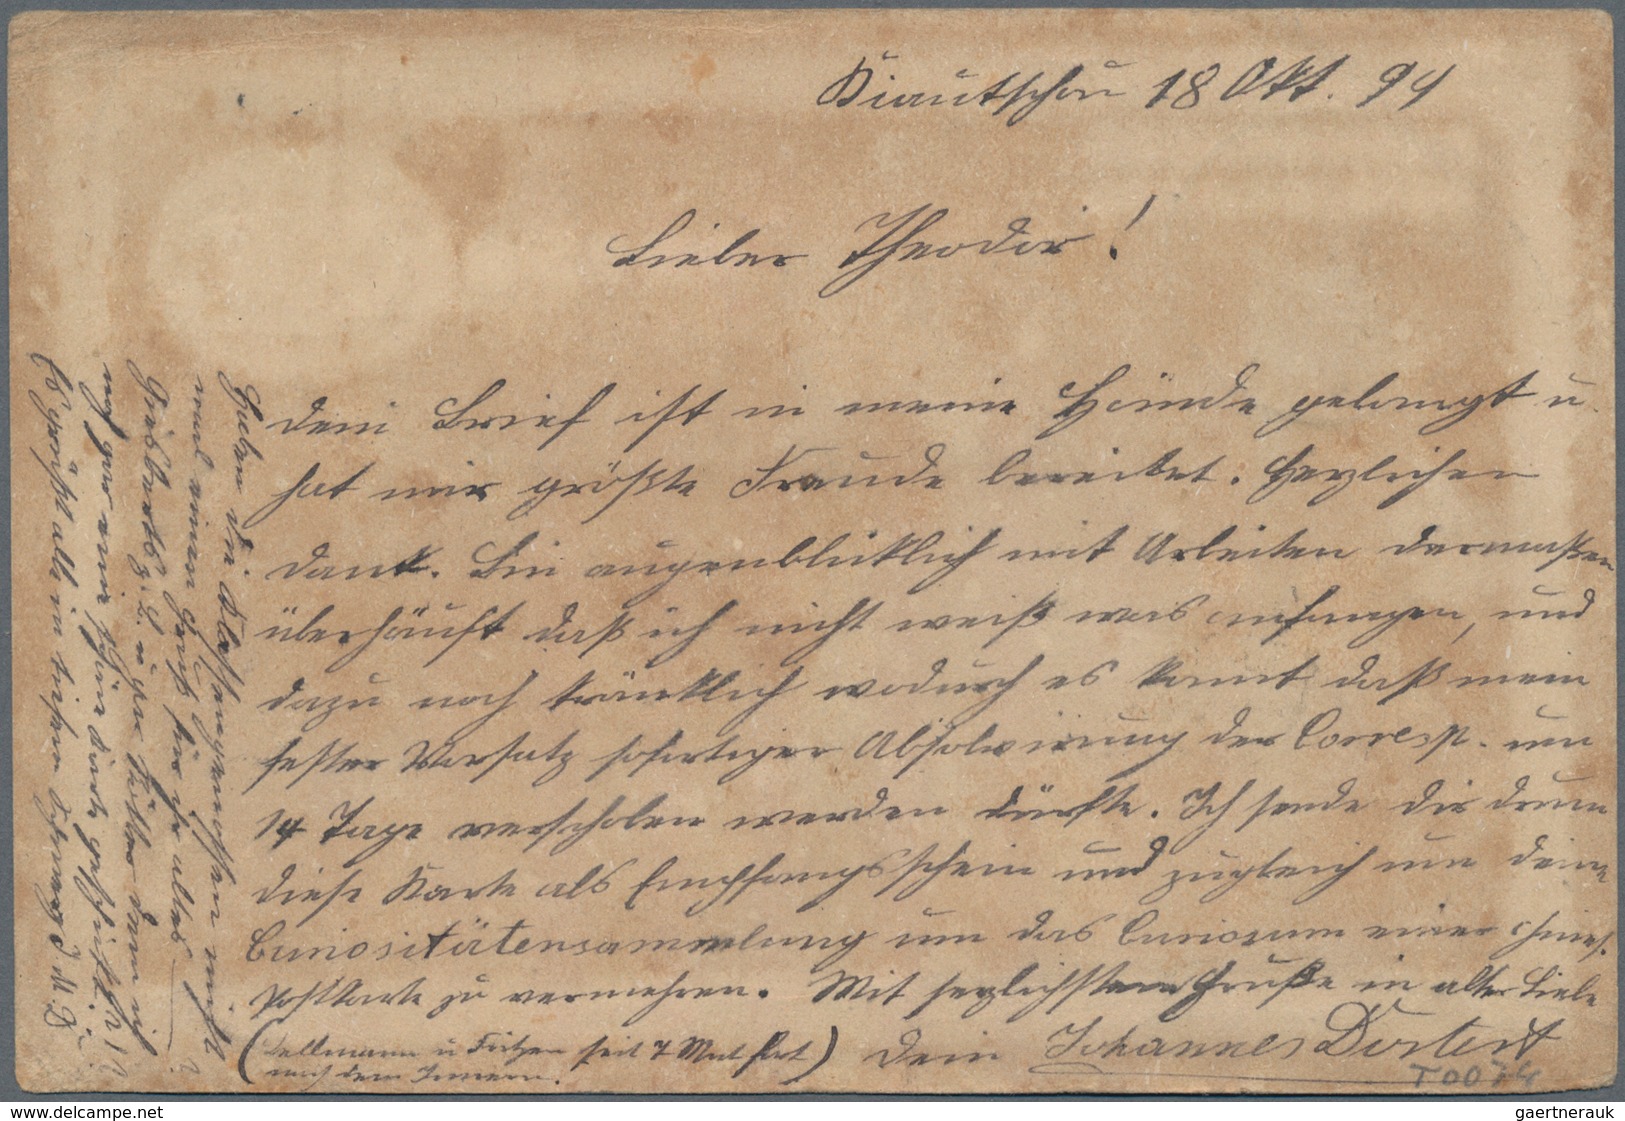 Kiautschou 18 Okt. 94
Lieber Theodor!
dein Brief ist in meine Hände gelangt u.
hat mir größte Freude bereitet. Herzlichen
Dank. Bin augenblicklich mit Arbeiten dermaßen
überhäuft daß ich nicht weiß was anfangen, und
dazu noch kränklich wodurch es kommt daß mein
fester Vorsatz sofortiger Absolvierung der Corresp. um
14 Tage verschoben werden dürfte. Ich sende dir drum
diese Karte als Empfangsschein und zugleich um deine
Curiositätensammlung um das Curiosum einer chines.
Postkarte zu vermehren. Mit herzlichstem Gruße in alter Liebe
( u Fritzen seit 7 fort) dein Johannes
nach dem Innern.
Haben die nicht
mal einen Gruß für ihr altes
dann ich
noch gar nie schön
Es grüßt alle in
T0074
www.delcampe.net
gaertnerauk